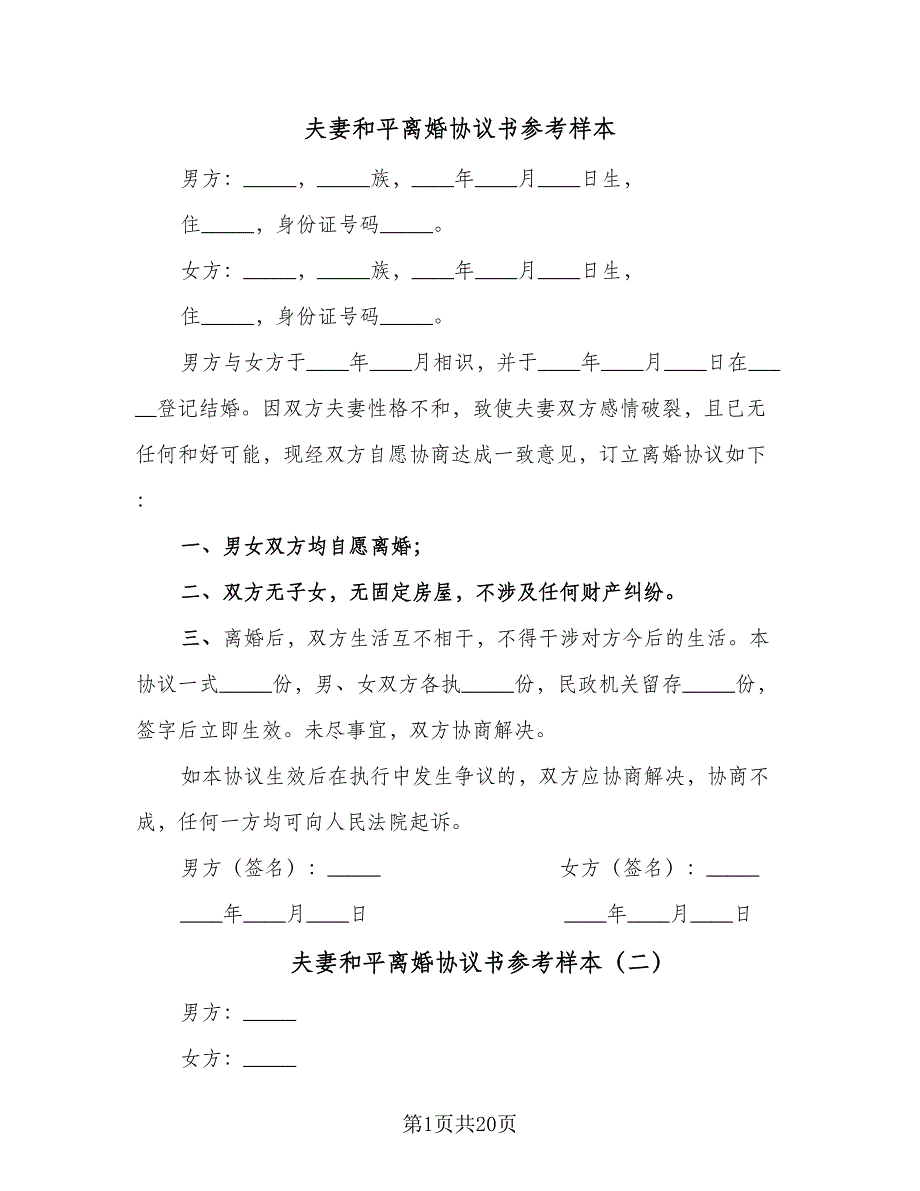 夫妻和平离婚协议书参考样本
男方：_____，_____族，____年____月____日生，
住_____，身份证号码_____。
女方：_____，_____族，____年____月____日生，
住_____，身份证号码_____。
男方与女方于____年____月相识，并于____年____月____日在___
__登记结婚。因双方夫妻性格不和，致使夫妻双方感情破裂，且已无
任何和好可能，现经双方自愿协商达成一致意见，订立离婚协议如下
：
一、男女双方均自愿离婚；
二、双方无子女，无固定房屋，不涉及任何财产纠纷。
三、离婚后，双方生活互不相干，不得干涉对方今后的生活。本
协议一式_____份，男、女双方各执_____份，民政机关留存_____份，
签字后立即生效。未尽事宜，双方协商解决。
如本协议生效后在执行中发生争议的，双方应协商解决，协商不
成，任何一方均可向人民法院起诉。
男方（签名）：_____ 女方（签名）：_____
____年____月____日 ____年____月____日
夫妻和平离婚协议书参考样本（二）
男方：_____
女方：_____
第1页共20页